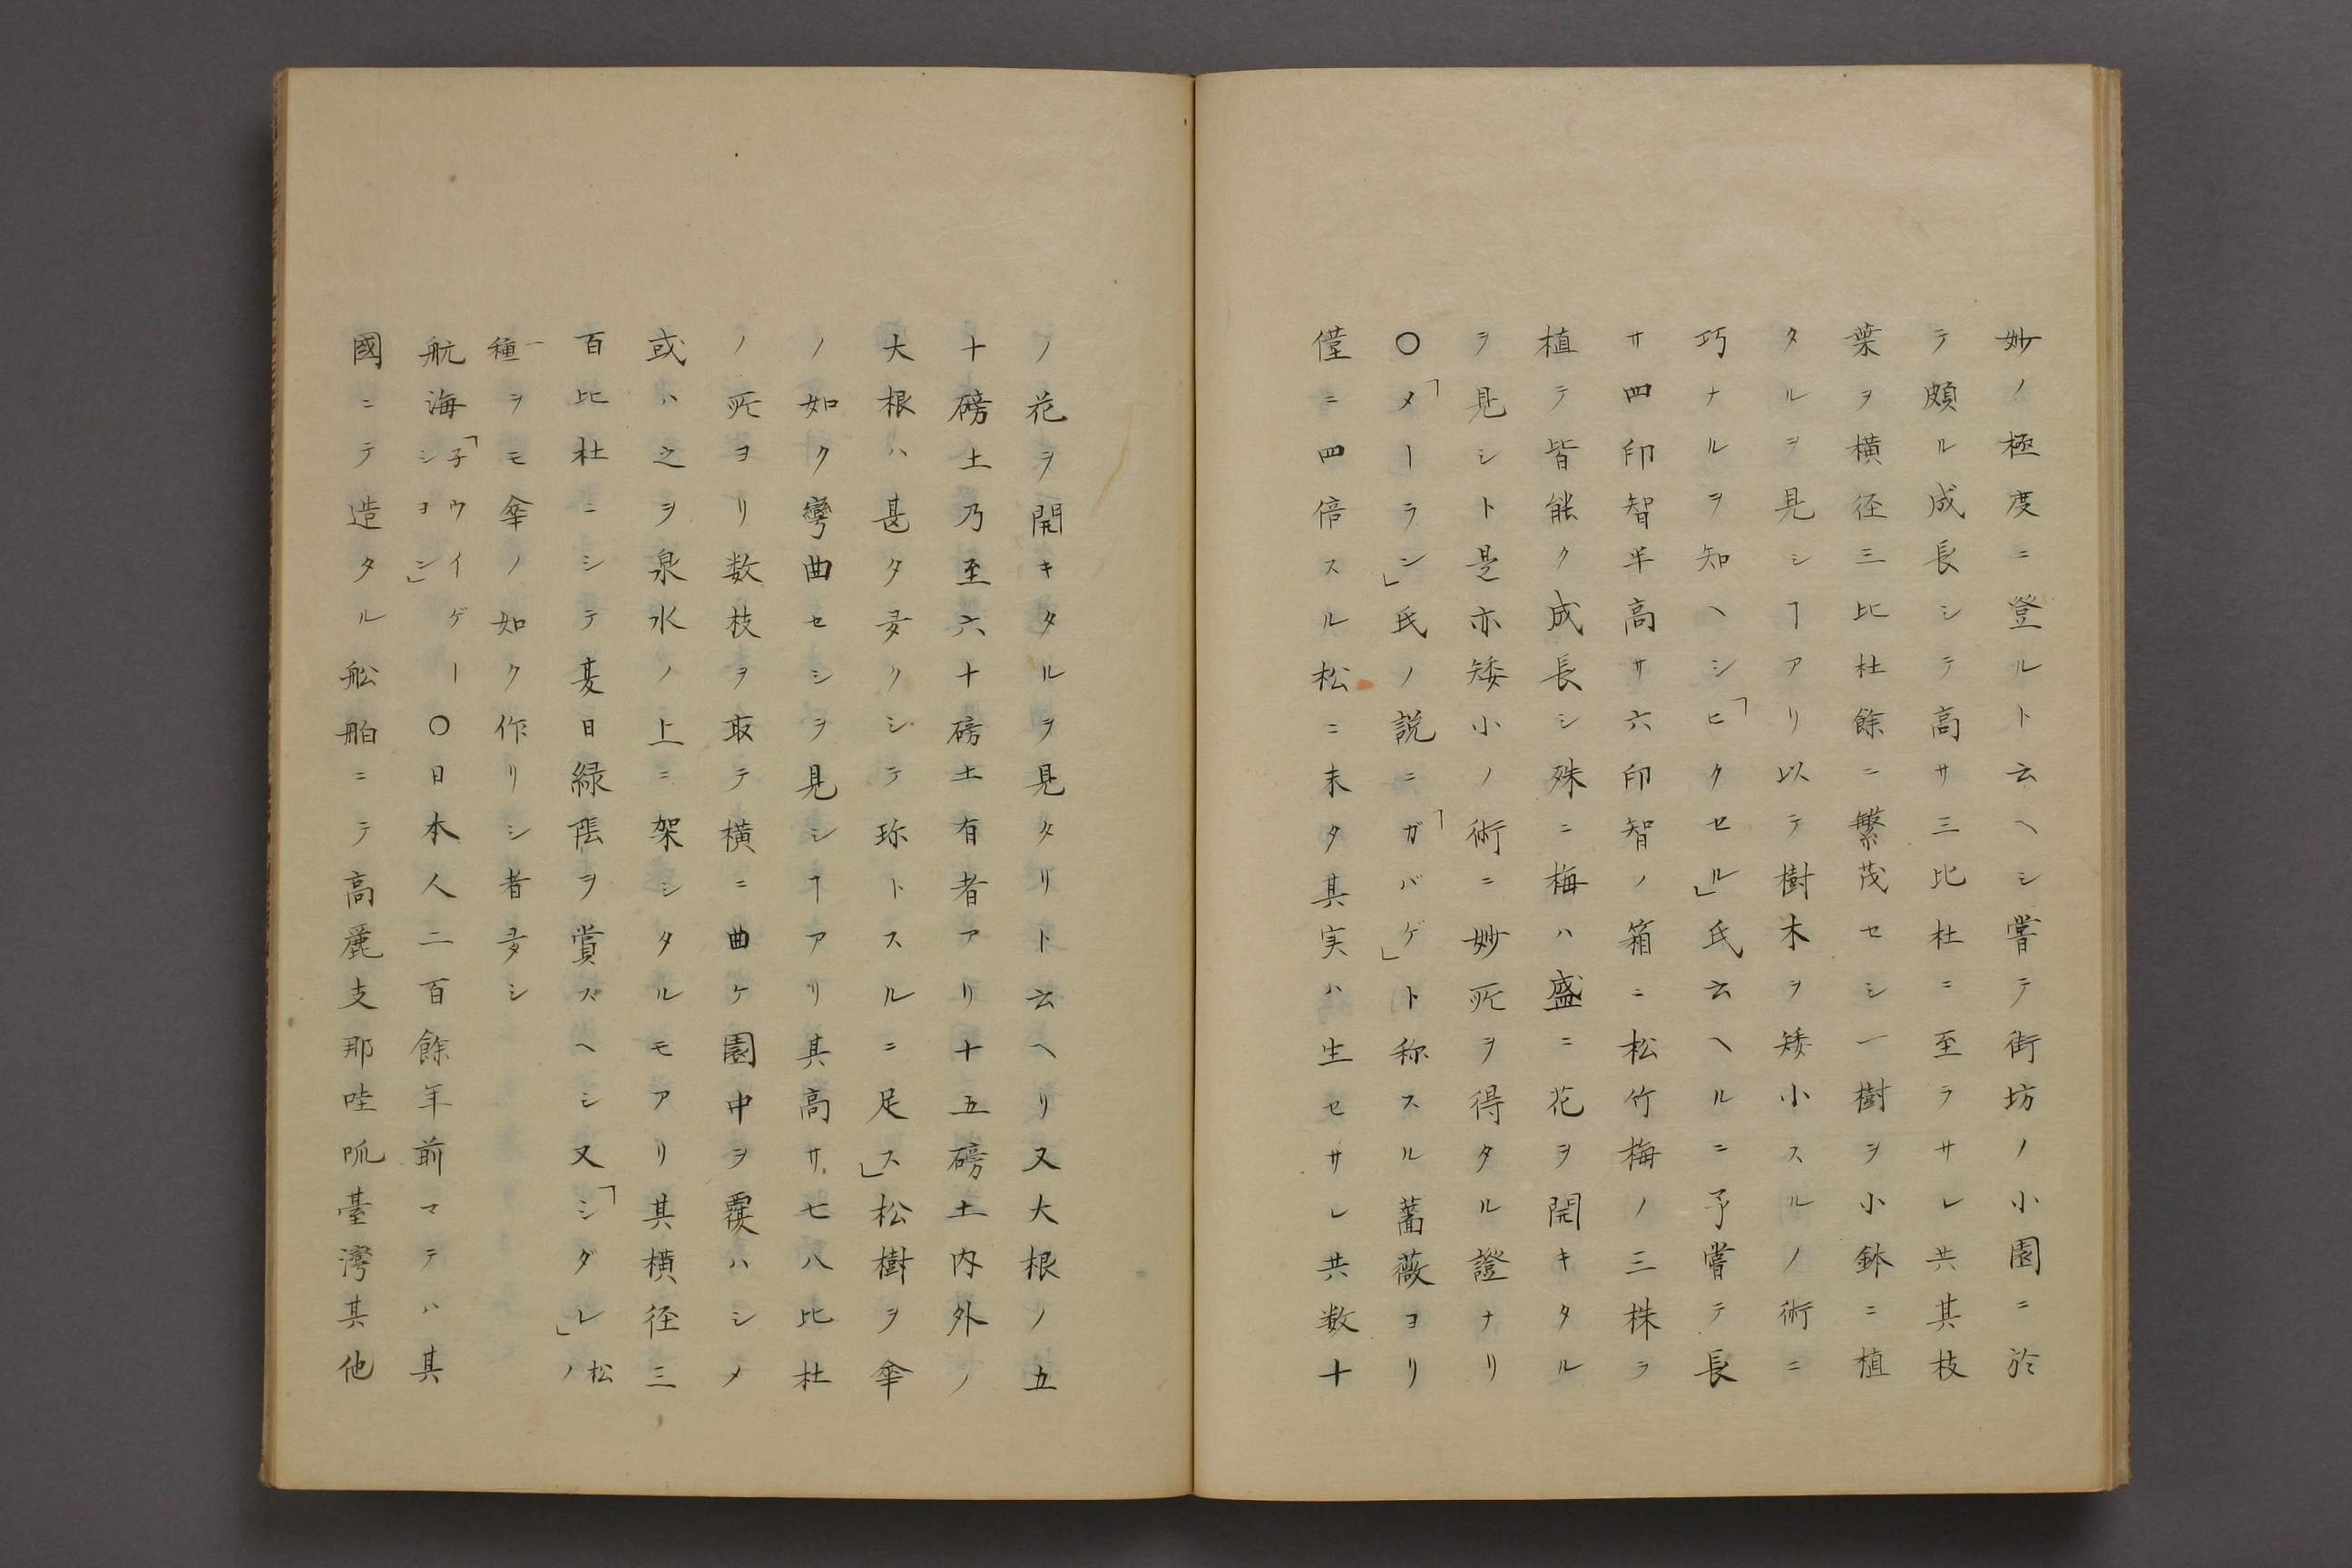 妙ノ極度ニ登ルト云ヘシ嘗テ街坊ノ小園ニ於
テ頗ル成長シテ高サ三比杜ニ至ラサレ共其枝
葉ヲ横径三比杜餘ニ繁茂セシ一樹ヲ小鉢ニ植
タルヲ見シヿアリ以テ樹木ヲ矮小スルノ術ニ
巧ナルヲ知ヘシ「ヒクセル」氏云ヘルニ予嘗テ長
サ四印智半高サ六印智ノ箱ニ松竹梅ノ三株ヲ
植テ皆能ク成長シ殊ニ梅ハ盛ニ花ヲ開キタル
ヲ見シト是亦矮小ノ術ニ妙所ヲ得タル證ナリ
〇「メーラン」氏ノ説ニ「ガバゲ」ト称スル薔薇ヨリ
僅ニ四倍スル松ニ末タ其実ハ生セサレ共数十
ノ花ヲ開キタルヲ見タリト云ヘリ又大根ノ五
十磅土乃至六十磅土有者アリ十五磅土内外ノ
大根ハ甚タ夛クシテ珎トスルニ足ス」松樹ヲ傘
ノ如ク彎曲セシヲ見シヿアリ其高サ七八比杜
ノ所ヨリ数枝ヲ取テ横ニ曲ケ園中ヲ覆ハシメ
或ハ之ヲ泉水ノ上ニ架シタルモアリ其横径三
百比杜ニシテ夏日緑陰ヲ賞スヘシ又「シダレ」松ノ
一種ヲモ傘ノ如ク作リシ者夛シ
航海「子ウイゲーシヨン」〇日本人二百餘年前マテハ其
國ニテ造タル舩舶ニテ高麗支那哇呱臺灣其他